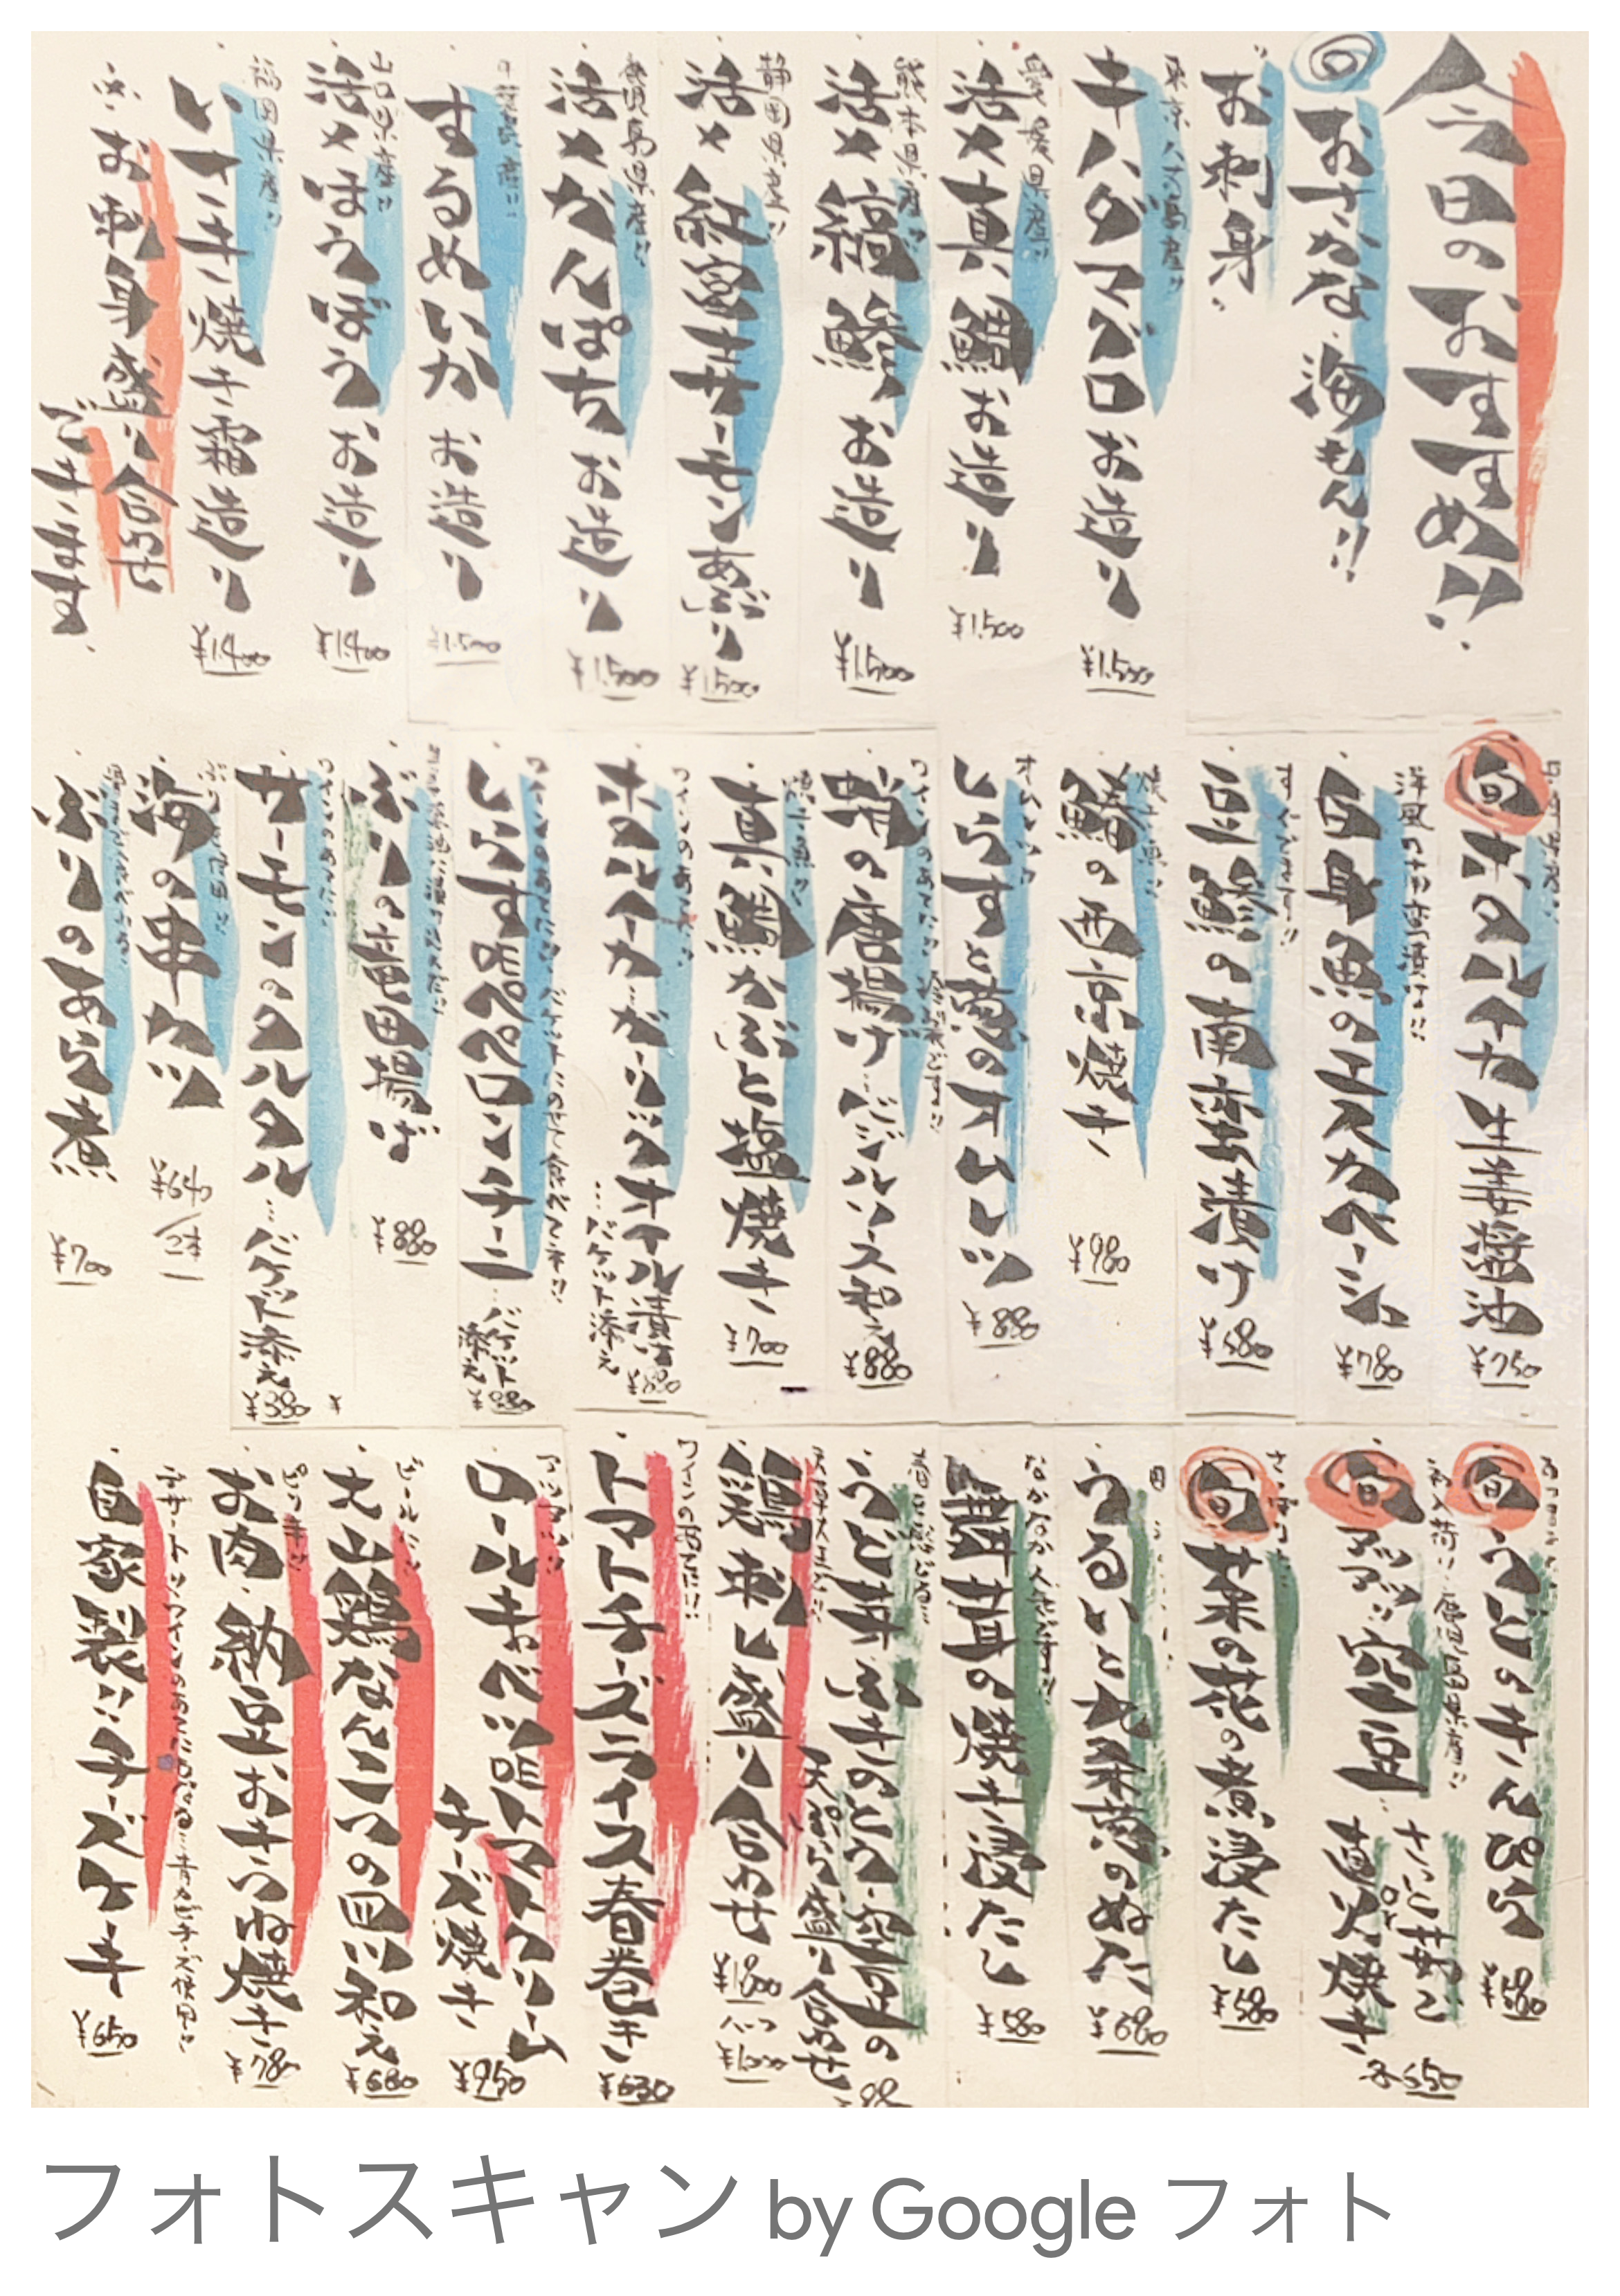 今日のおすすめ!!
おさかな・海もん!!
お刺身
東京八丈島産!!
キハダマグロお造り
¥1,500
愛媛県産!!
活〆真鯛お造り
¥1,500
熊本県産!!
活〆縞鯵お造り
¥1,500
静岡県産!!
活〆紅富士サーモンあぶり
¥1,500
鹿児島県産!!
活〆かんぱちお造り
¥1,500
するめいかお造り
¥1,500
山口県産!!
活〆ほうぼうお造り
¥1,400
福岡県産!!
いさき焼き霜造り
¥1,400
※お刺身盛り合せ
できます
旬 ホタルイカ生姜醤油
¥750
白身魚のエスカベーシュ
¥780
すぐでます!!
豆鯵の南蛮漬け
¥580
焼き魚!!
鰆の西京焼き
¥980
しらすと葱のオムレツ
¥880
蛸の唐揚げバジルソース和え
¥880
焼き魚!!
真鯛かぶと塩焼き
¥700
ワインのあてに!!
ホタルイカ・ガーリックオイル漬け
…バケット添え
¥880
ワインのあてに!! バケットにのせて食べてネ!!
しらすdeペペロンチーニ…バケット添え
¥880
ぶりの竜田揚げ
¥880
ワインのあてに!!
サーモンのタルタル…バケット添え
海の串カツ
ぶりのあら煮
¥700
旬 うどのきんぴら
旬
初入荷!! 鹿児島県産!!
空豆
さっと茹でor直火焼き
旬 菜の花の煮浸たし
¥580
¥680
舞茸の焼き浸たし
¥580
天ぷら盛り合わせ
鶏刺し盛り合わせ
トマトチーズライス春巻き
¥630
ロールキャベツdeトマトクリーム
チーズ焼き
¥950
ビールに!!
大山鶏なんこつの四川和え
¥680
お肉・納豆おきつね焼き
¥780
自家製!!チーズケーキ
¥650
フォトスキャン by Google フォト